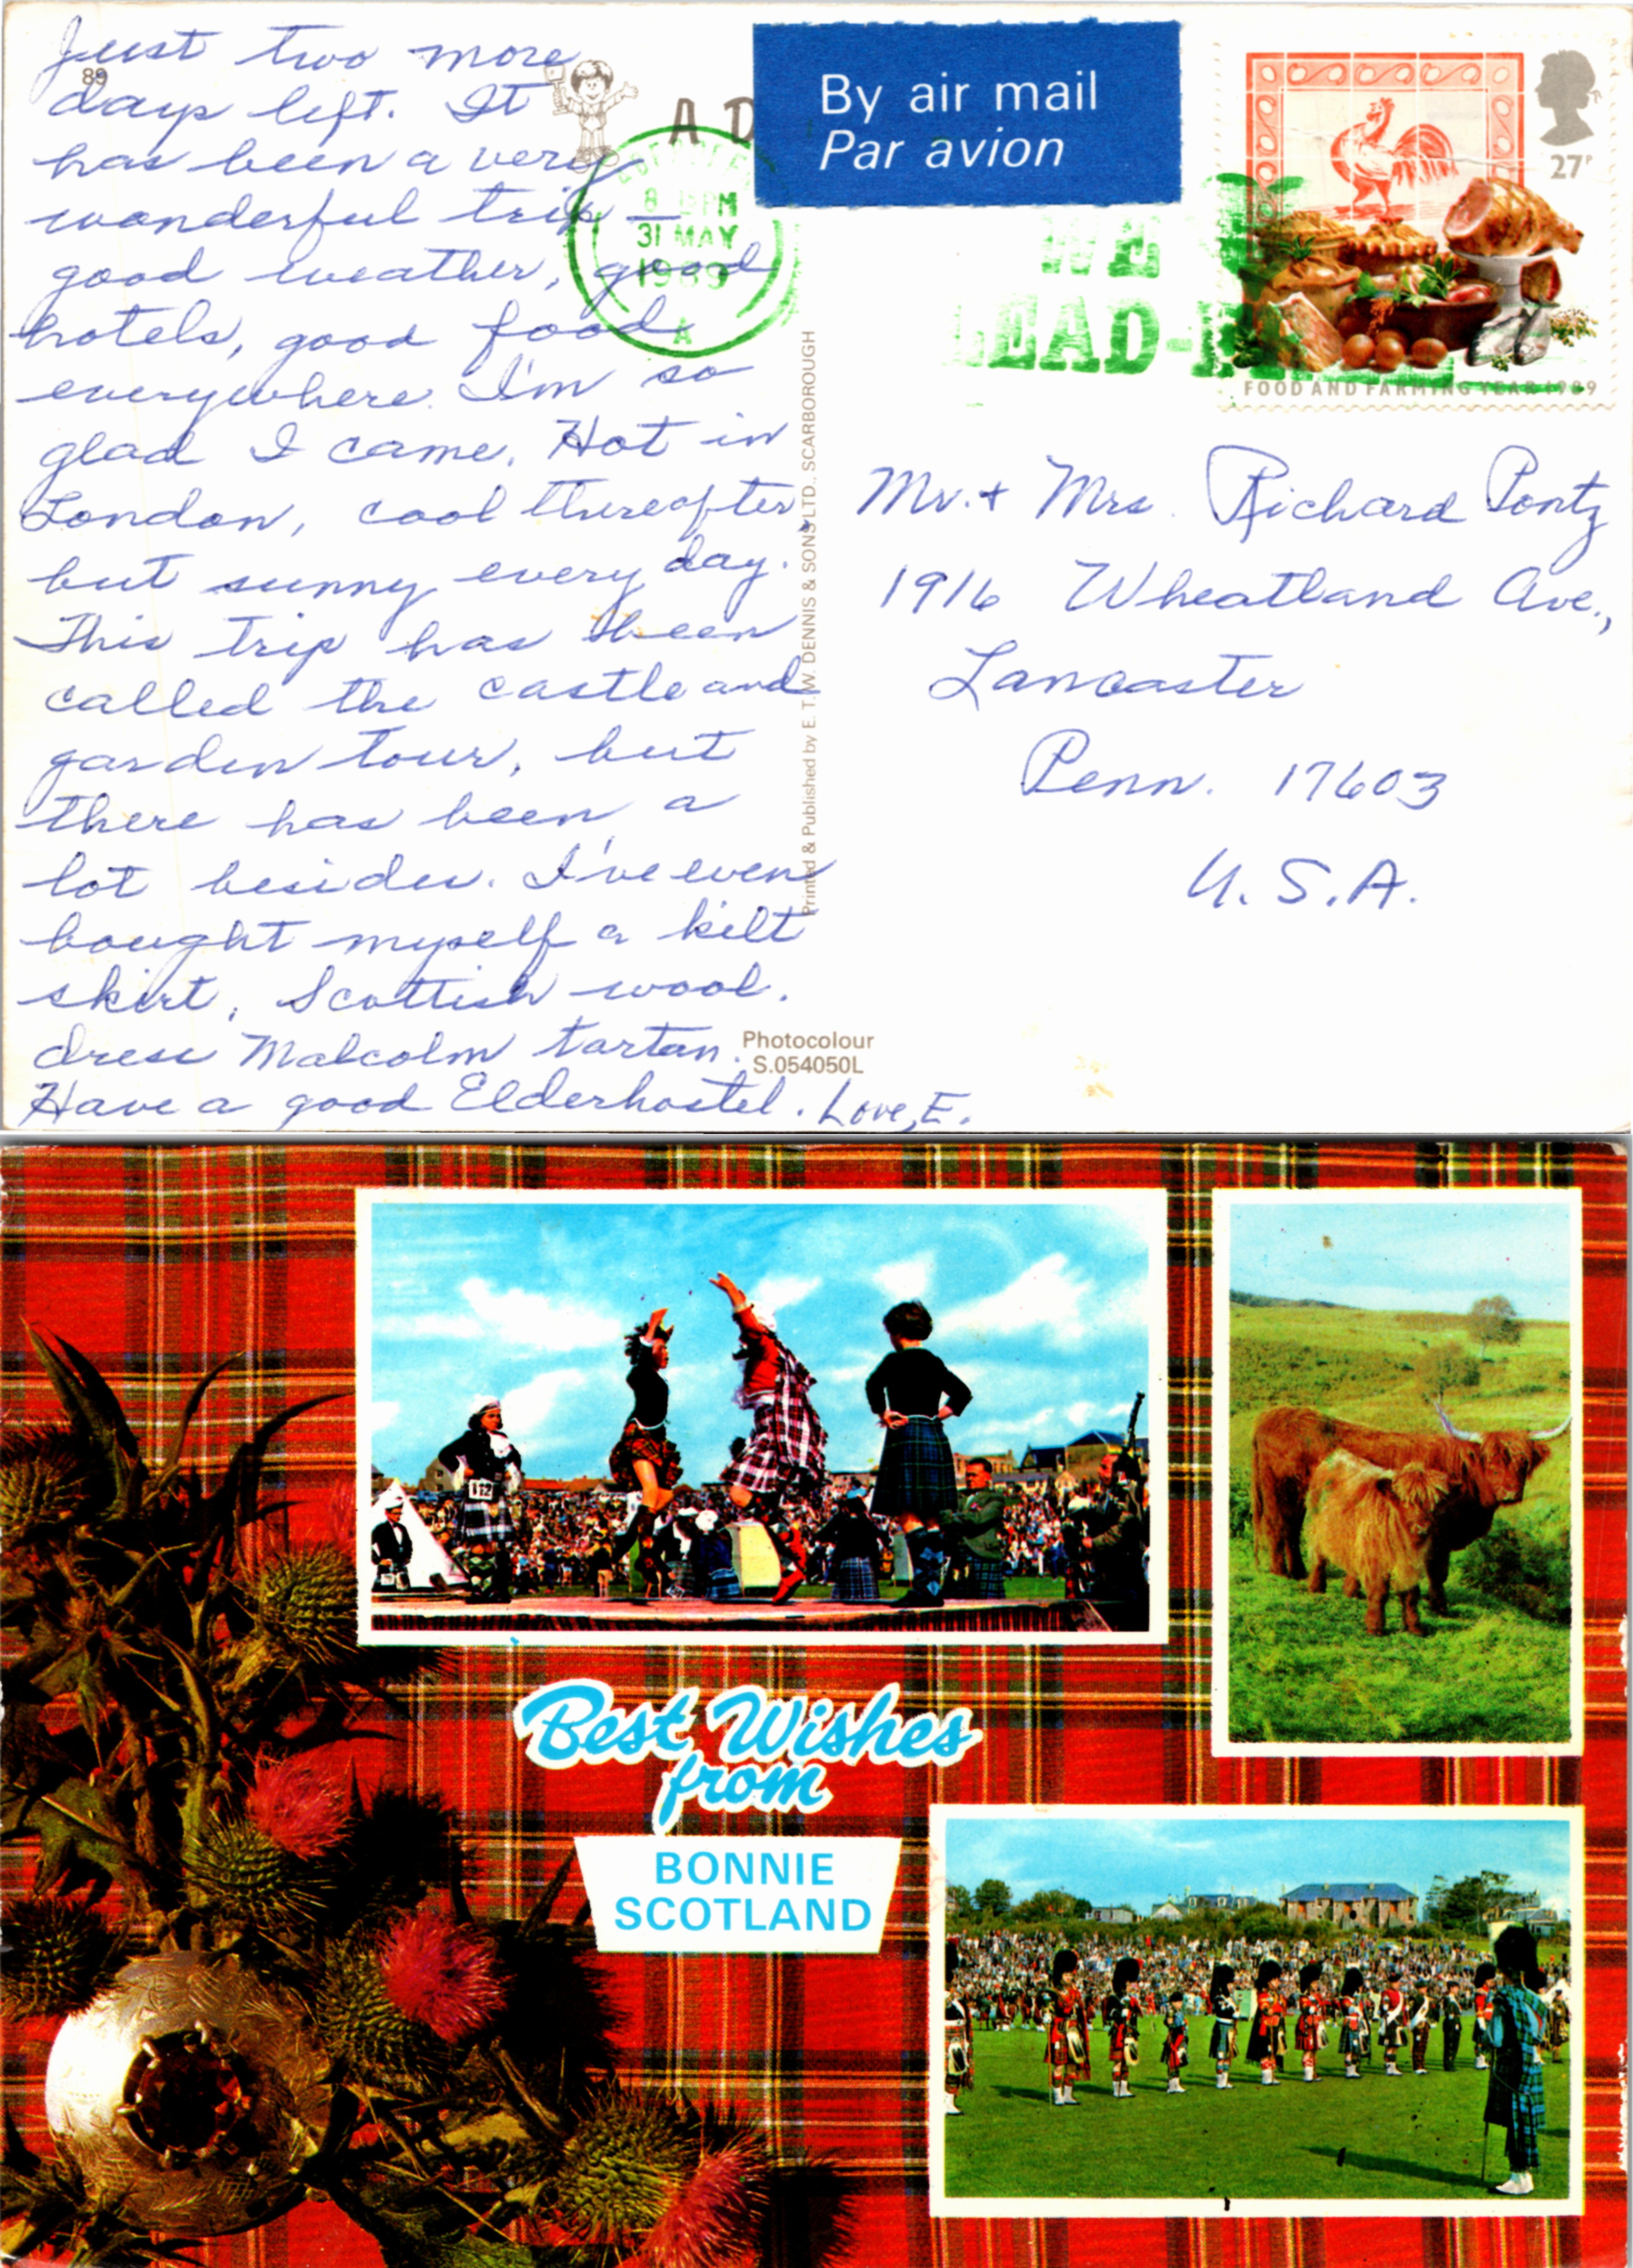 Just two more
89
days left. It
has been a very
wonderful trip
good weather, good
hotels, good food
everywhere. I'm so
glad I came. Hot in
London, cool thereafter
but sunny every day.
This trip has been
called the castle and
garden tour, but
there has been a
lot besides. I've even
bought myself a kilt
skirt, Scottish wool.
dress Malcolm tartan.
Have a good Elderhostel. Love, E.
A D
By air mail
Par avion
8 PM
31 MAY
1989
A
WE
LEAD-
27P
FOOD AND FARMING YEAR 1989
Printed & Published by E. T. W. DENNIS & SONS LTD., SCARBOROUGH
Mr. + Mrs. Richard Pontz
1916 Wheatland Ave.,
Lancaster
Penn. 17603
U.S.A.
Photocolour
S.054050L
Best Wishes
from
BONNIE
SCOTLAND